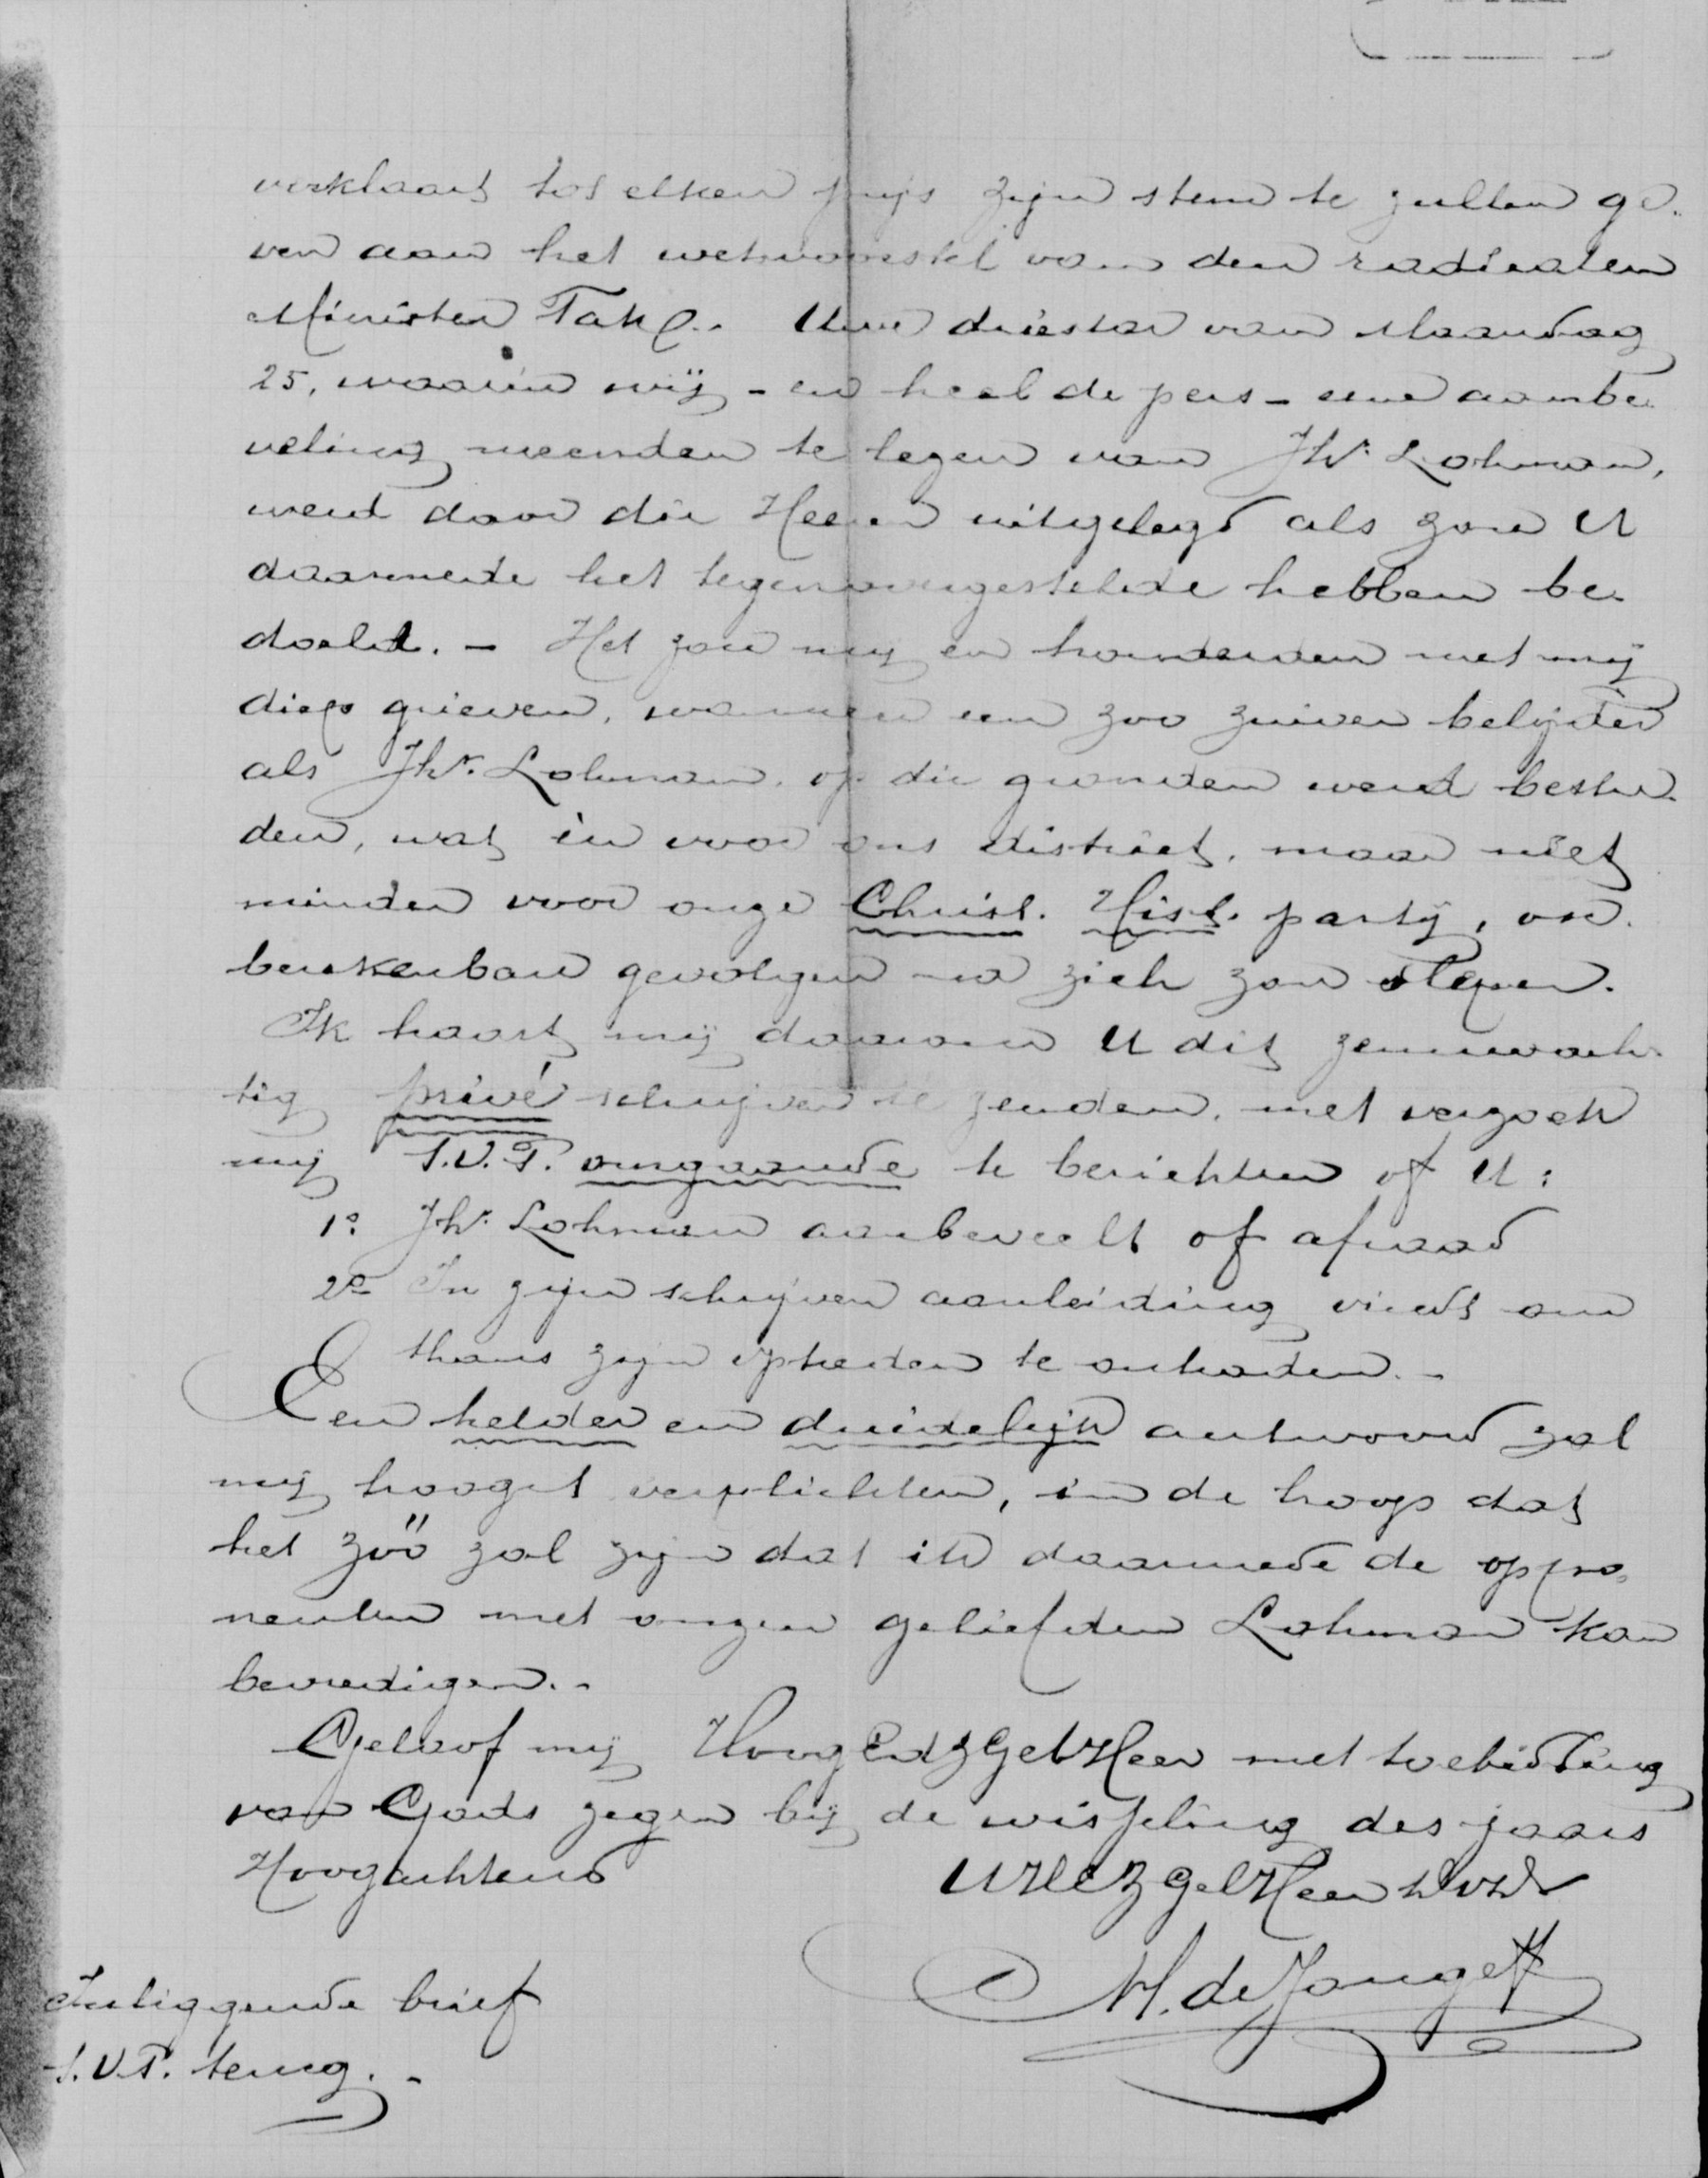 verklaart tot elken prijs zijn stem te zullen ge-
ven aan het wetsvoorstel van den radicalen
Minister Tak. Uwe driestar van Maandag
25, waarin wij - en heel de pers - eene aanbe-
veling meenden te lezen van Jhr. Lohman,
werd door die Heeren uitgelegd als zou U
daarmede het tegenovergestelde hebben be-
doeld. - Het zou mij en honderden met mij
diep grieven, wanneer een zoo zuiver belijder
als Jhr. Lohman, op die gronden werd bestre-
den, wat én voor ons district, maar niet
minder voor onze Christ. Hist. partij, on-
berekenbare gevolgen na zich zou slepen.
Ik haast mij daarom U dit zenuwach-
tig privé schrijven te zenden, met verzoek
mij S.V.P. omgaande te berichten of U:
1o. Jhr. Lohman aanbeveelt of afraad
2o In zijn schrijven aanleiding vindt om
thans zijn optreden te ontraden. -
Een helder en duidelijk antwoord zal
mij hoogst verplichten, in de hoop dat
het zóó zal zijn dat ik daarmede de oppo-
nenten met onzen geliefden Lohman kan
bevredigen. -
Geloof mij HoogEdzGelHeer met toebidding
van Gods zegen bij de wisseling des jaars
Hoogachtend UHEZGelHeer dw dr
M. de Jonge
Inliggende brief
S.V.P. terug. -